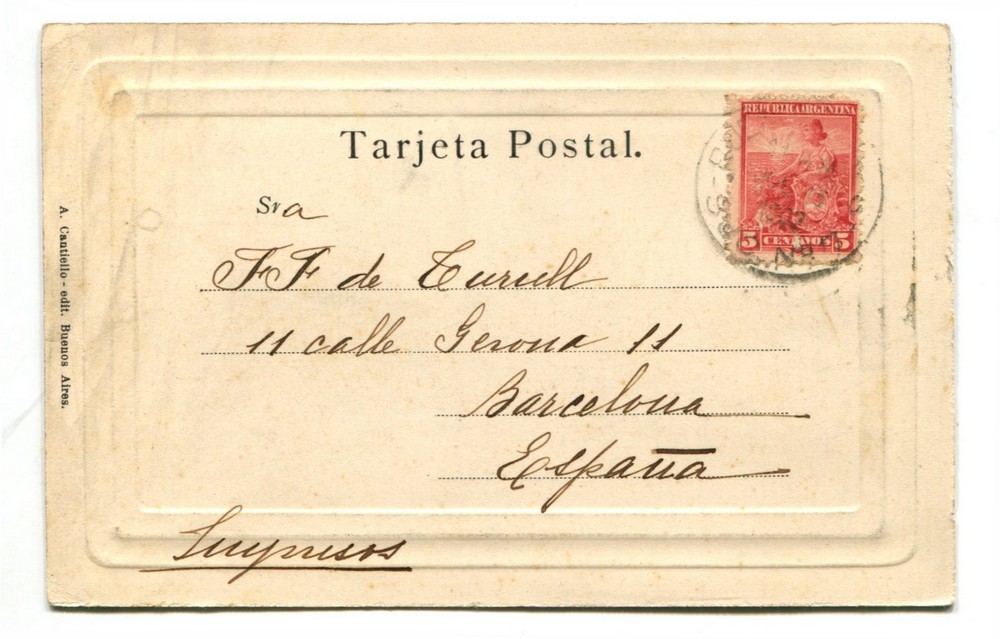 Tarjeta Postal.
REPUBLICA ARGENTINA
5 CENTAVOS 5
Sra
FF de Turull
11 calle Gerona 11
Barcelona
España
Impresos
A. Cantiello - edit. Buenos Aires.